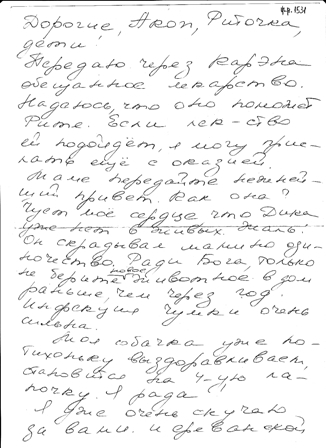 Дорогие, Акоп, Риточка,
дети!
Передаю через Карэна
обещанное лекарство.
Надеюсь, что оно поможет
Рите. Если лек-ство
ей подойдёт, я могу прис-
лать ещё с оказией.
Маме передайте нежней-
ший привет. Как она?
Чует моё сердце что Дика
уже нет в живых. Жаль!
Он скрадывал мамино оди-
ночество. Ради Бога, только
не берите новое животное в дом
раньше, чем через год.
Инфекция чумки очень
сильна.
Моя собачка уже по-
тихоньку выздоравливает,
становится на 4-ую ла-
почку. Я рада!
Я уже очень скучаю
за вами. и ереванской